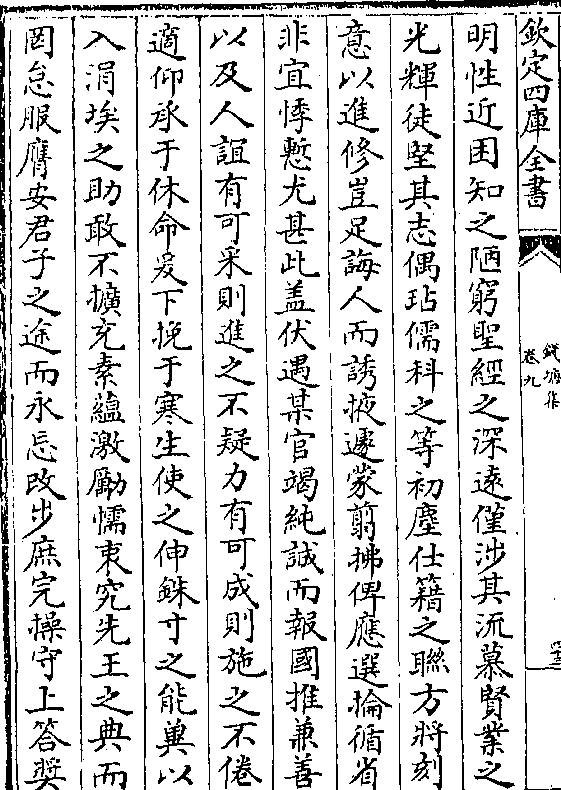 欽定四庫全書
錢塘集
卷九
明性近困知之陋窮聖經之深遠僅涉其流慕賢業之
光輝徒堅其志偶玷儒科之等初塵仕籍之聯方將刻
意以進修豈足誨人而誘掖遽蒙翦拂俾應選掄循省
非宜悸慙尤甚此盖伏遇某官竭純誠而報國推兼善
以及人誼有可采則進之不疑力有可成則施之不倦
適仰承于休命爰下挽于寒生使之伸銖寸之能兾以
入涓埃之助敢不擴充素蘊激勵懦衷究先王之典而
罔怠服膺安君子之途而永忘改步庶完操守上答奬